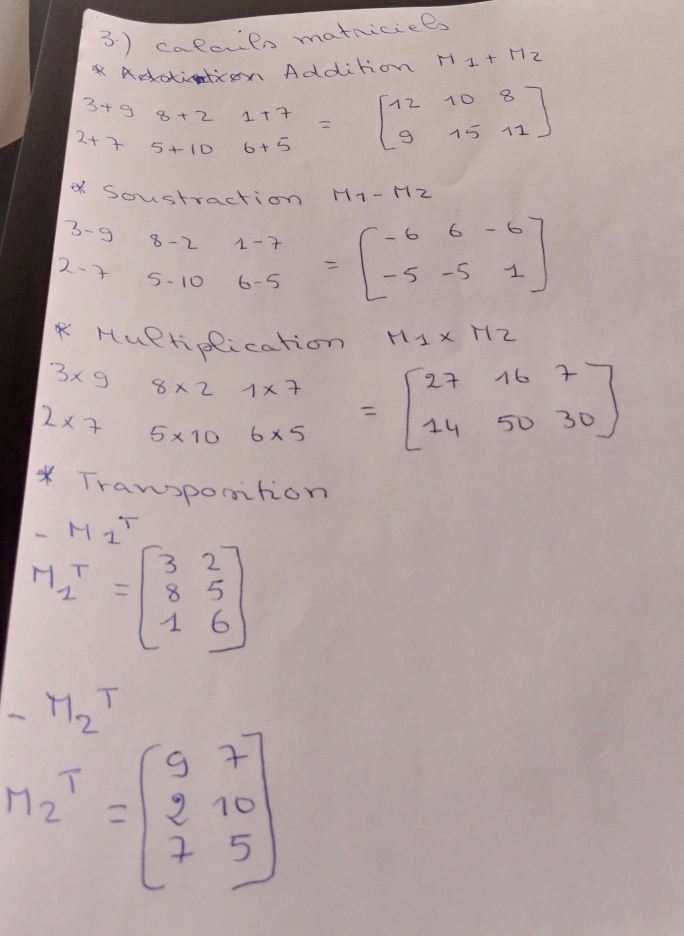 3.) Calculs matriciels
* Addition Addition M1 + M2
3+9 8+2 1+7
2+7 5+10 6+5
= [12 10 8
9 15 11]
* Soustraction M1 - M2
3-9 8-2 1-7
2-7 5-10 6-5
= [-6 6 -6
-5 -5 1]
* Multiplication M1 x M2
3x9 8x2 1x7
2x7 5x10 6x5
= [27 16 7
14 50 30]
* Transposition
- M1^T
M1^T = [3 2
8 5
1 6]
- M2^T
M2^T = [9 7
2 10
7 5]